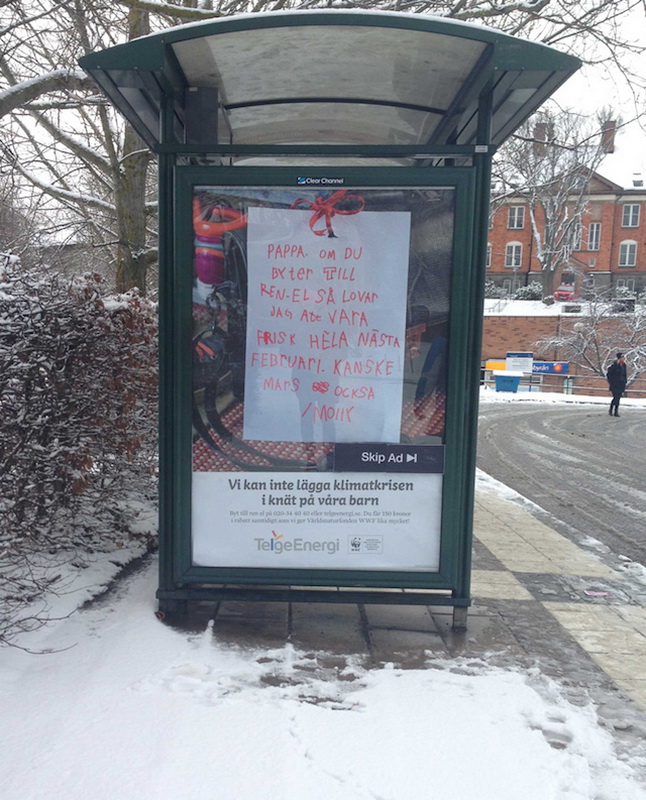 Clear Channel
PAPPA. OM DU
Byter TILL
REN-EL SÅ LOVAR
JAG Att VARA
FRISK HELA NÄSTA
FEBRUARI. KANSKE
MARS OCKSA
/MOLLY
Skip Ad
Vi kan inte lägga klimatkrisen
i knät på våra barn
Byt till ren el på 020-34 40 40 eller telgeenergi.se. Du får 150 kronor
i rabatt samtidigt som vi ger Världsnaturfonden WWF lika mycket!
TelgeEnergi
WWF